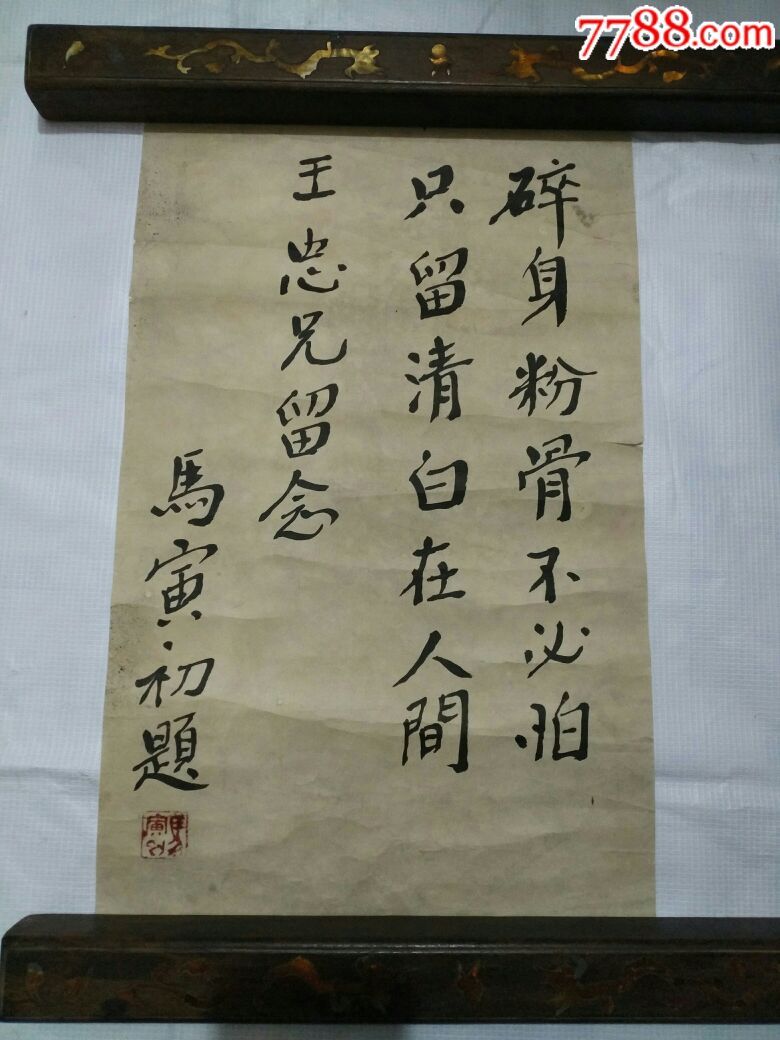 7788.com
碎身粉骨不必怕
只留清白在人間
王忠兄留念
馬寅初題
馬寅初